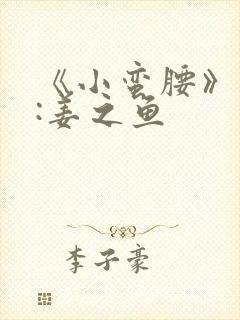 《小蛮腰》
:姜之鱼
李子豪